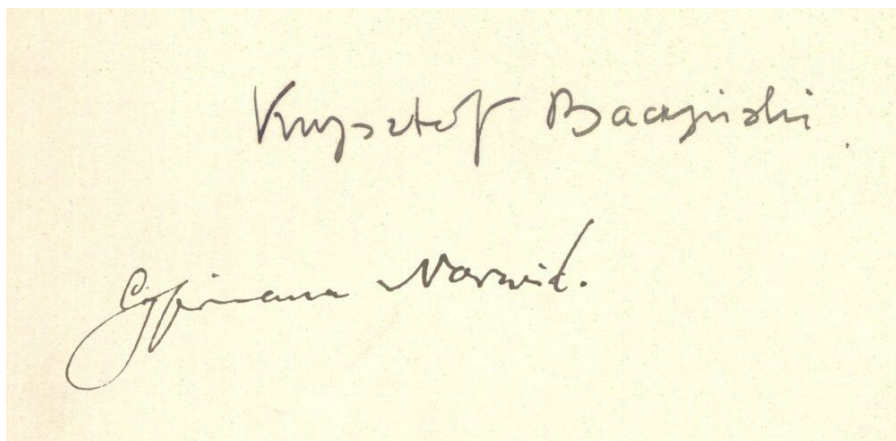 Krzysztof Baczyński.
Cypriana Norwid.